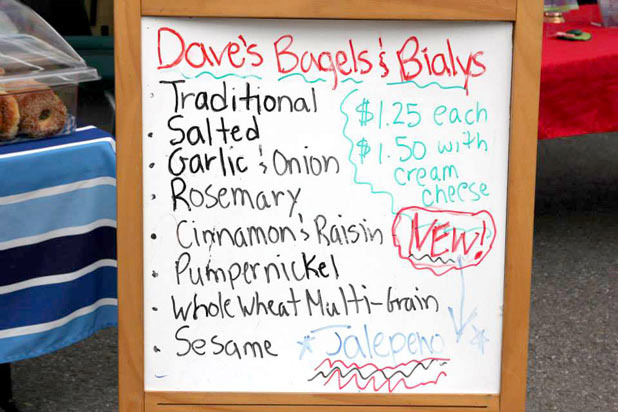 Dave's Bagels & Bialys
• Traditional
• Salted
• Garlic & Onion
• Rosemary
• Cinnamon & Raisin
• Pumpernickel
• Whole Wheat Multi-Grain
• Sesame
$1.25 each
$1.50 with
cream
cheese
NEW!
Jalepeno